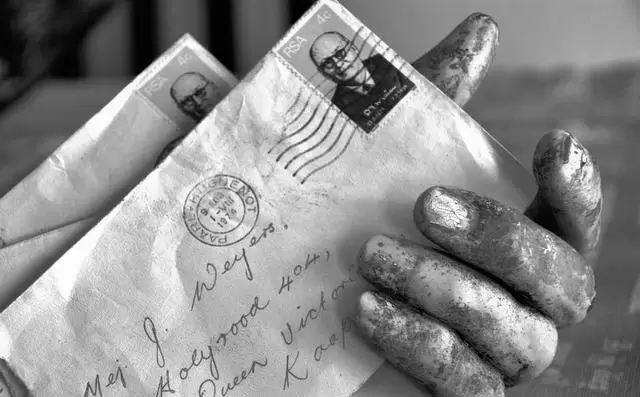 RSA 4c
RSA 4c
PAARL-HUGUENOT
1974
Mej J. Weyers.
Holyrood 404,
Queen Victoria
Kaap